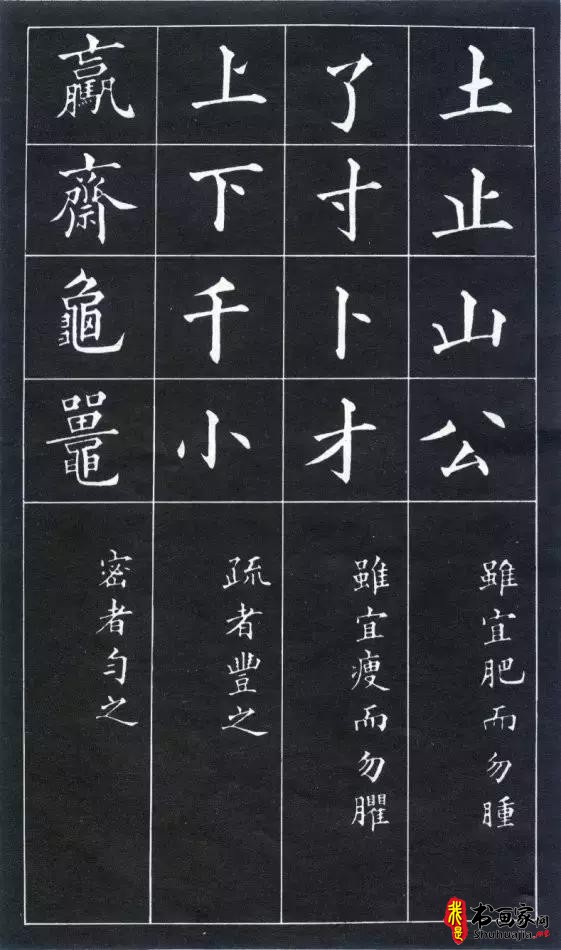 土止山公
雖宜肥而勿腫
了寸卜才
雖宜瘦而勿臞
上下千小
疏者豐之
齋龜鼉
密者勻之
我是书画家网
Shuhuajia.net